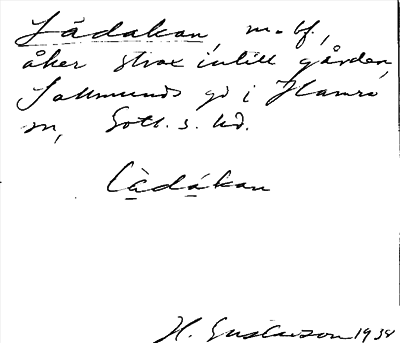 Lådakan, m. bf.,
åker strax intill gården
Sallmunds gd i Hamra
sn, Gotl. s. hd.
làdákan
H. Gustavson 1938